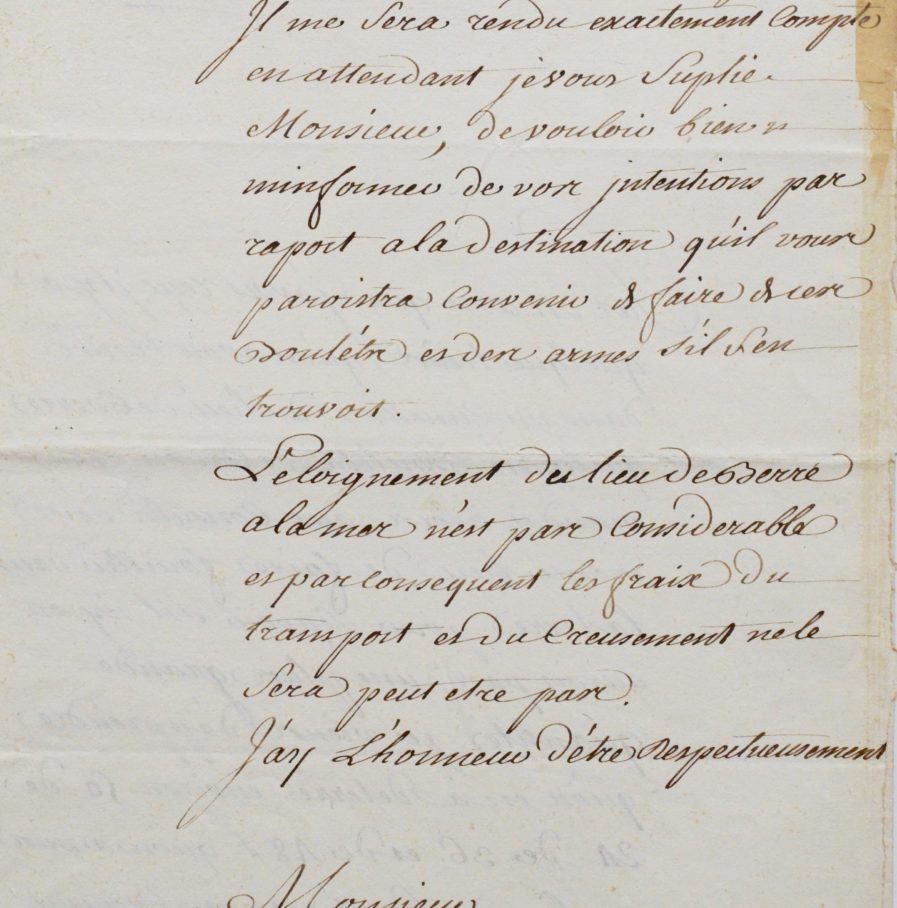 Il me sera rendu exactement compte
en attendant je vous suplie
Monsieur, de vouloir bien
minformer de vos jntentions par
raport a la destination qu'il vous
paroistra convenir de faire de ces
Bouléts et des armes s'il s'en
trouvoit.
L'eloignement du lieu de Berre
a la mer n'est pas considerable
et par consequent les fraix du
transport et du creusement ne le
sera peut etre pas.
J'ay l'honneur d'étre respectueusement
Monsieur